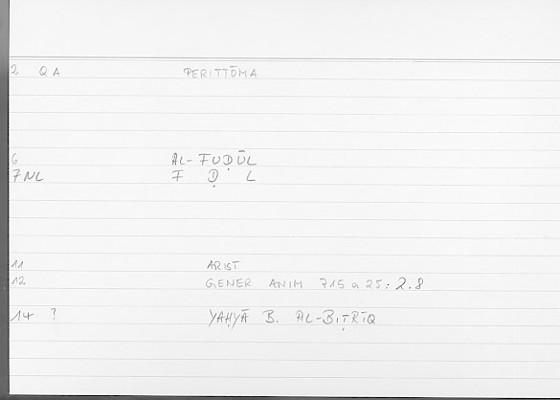 2 QA PERITTŌMA
6 AL-FUḌŪL
7NL F Ḍ L
11 ARIST
12 GENER ANIM 715 a 25: 2.8
14 ? YAḤYĀ B. AL-BIṬRĪQ